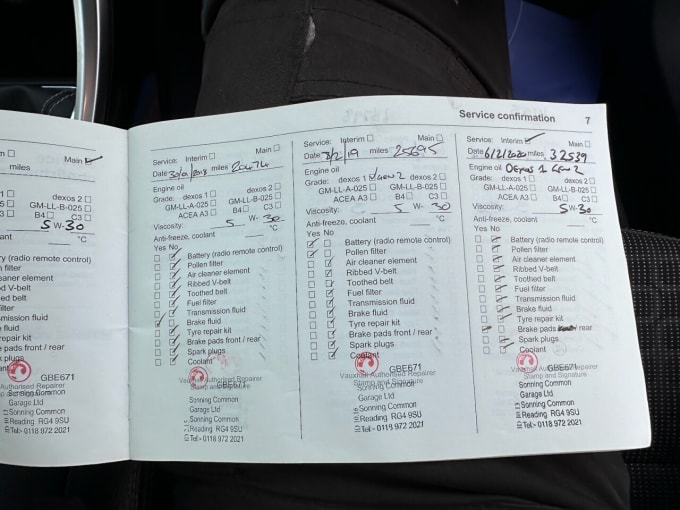 Service confirmation 7
m Main ✓
s
1 dexos 2
025 GM-LL-B-025
B4 C3
5 W-30
ant °C
ry (radio remote control)
filter
aner element
ed V-belt
ed belt
ter
nission fluid
fluid
repair kit
pads front / rear
plugs
GBE671
Authorised Repairer
Sonning Common
Garage Ltd
Sonning Common
Reading RG4 9SU
Tel:- 0118 972 2021
Service: Interim Main
Date miles 20474
Engine oil
Grade: dexos 1 dexos 2
GM-LL-A-025 GM-LL-B-025
ACEA A3 B4 C3
Viscosity: 5 W-30
Anti-freeze, coolant °C
Yes No
Battery (radio remote control)
Pollen filter
Air cleaner element
Ribbed V-belt
Toothed belt
Fuel filter
Transmission fluid
Brake fluid
Tyre repair kit
Brake pads front / rear
Spark plugs
Coolant
GBE671
Vauxhall Authorised Repairer
Stamp and Signature
Sonning Common
Garage Ltd
Sonning Common
Reading RG4 9SU
Tel:- 0118 972 2021
Service: Interim Main
Date 3/2/19 miles 25695
Engine oil
Grade: dexos 1 Gen 2 dexos 2
GM-LL-A-025 GM-LL-B-025
ACEA A3 B4 C3
Viscosity: 5 W-30
Anti-freeze, coolant °C
Yes No
Battery (radio remote control)
Pollen filter
Air cleaner element
Ribbed V-belt
Toothed belt
Fuel filter
Transmission fluid
Brake fluid
Tyre repair kit
Brake pads front / rear
Spark plugs
Coolant
GBE671
Vauxhall Authorised Repairer
Stamp and Signature
Sonning Common
Garage Ltd
Sonning Common
Reading RG4 9SU
Tel:- 0118 972 2021
Service: Interim ✓ Main
Date 6/2/2020 miles 32539
Engine oil Dexos 1 Gen 2
Grade: dexos 1 dexos 2
GM-LL-A-025 GM-LL-B-025
ACEA A3 B4 C3
Viscosity: 5W-30
Anti-freeze, coolant °C
Yes No
Battery (radio remote control)
Pollen filter
Air cleaner element
Ribbed V-belt
Toothed belt
Fuel filter
Transmission fluid
Brake fluid
Tyre repair kit
Brake pads rear
Spark plugs
Coolant
GBE671
Vauxhall Authorised Repairer
Stamp and Signature
Sonning Common
Garage Ltd
Sonning Common
Reading RG4 9SU
Tel:- 0118 972 2021